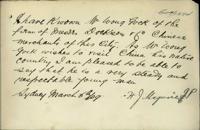 I have known Mr Wong Gock of the
firm of Messrs & Co Chinese
merchants of this City. As Mr Wong
Gock wishes to visit China his native
country I am pleased to be able to
say that he is a very steady and
respectable young man
Sydney March